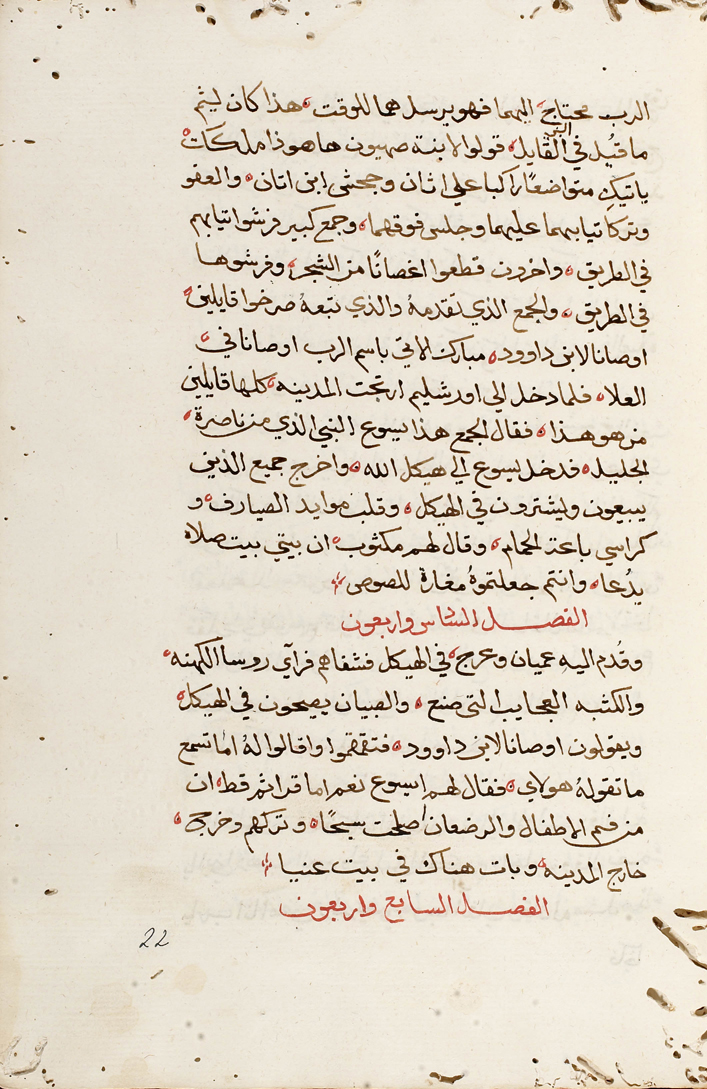 الرب محتاج اليهما فهو يرسلهما للوقت هذا كان ليثم
ما قيل في القايل قولوا لابنة صهيون ها هوذا ملكك
ياتيك متواضعًا راكبا علي اثان وجحشي ابن اتان والعفو
وتركا تيابهما عليهما وجلس فوقهما وجمع كبير فرشوا تيابهم
في الطريق واخرون قطعوا اغصانًا من الشجر وفرشوها
في الطريق والجمع الذي تقدمهُ والذي تبعهُ صرخوا قايلين
اوصانا لابن داوود مبارك الاتي باسم الرب اوصانا في
العلا فلما دخل الي اورشليم ارتجت المدينه كلها قايلين
من هو هذا فقال الجمع هذا يسوع النبي الذي من ناصرة
الجليل فدخل يسوع الي هيكل الله واخرج جميع الذين
يبيعون ويشترون في الهيكل وقلب موايد الصيارف و
كراسي باعة الحمام وقال لهم مكثوب ان بيتي بيت صلاه
يدُعا وانتم جعلتموهُ مغارة للصوص
الفصل السادس واربعون
وقُدم اليه عميان وعرج في الهيكل فشفاهم فرآي روسا الكهنه
والكتبه العجايب التي صنع والصبيان يصيحون في الهيكل
ويقولون اوصانا لابن داوود فتقمقموا وقالوا لهُ اما تسمع
ما تقولهُ هولاي فقال لهم يسوع نعم اما قراثم قط ان
من فم الاطفال والرضعان اصلحت سبحًا وتركهم وخرج
خارج المدينه وبات هناك في بيت عنيا
الفصل السابع واربعون
22